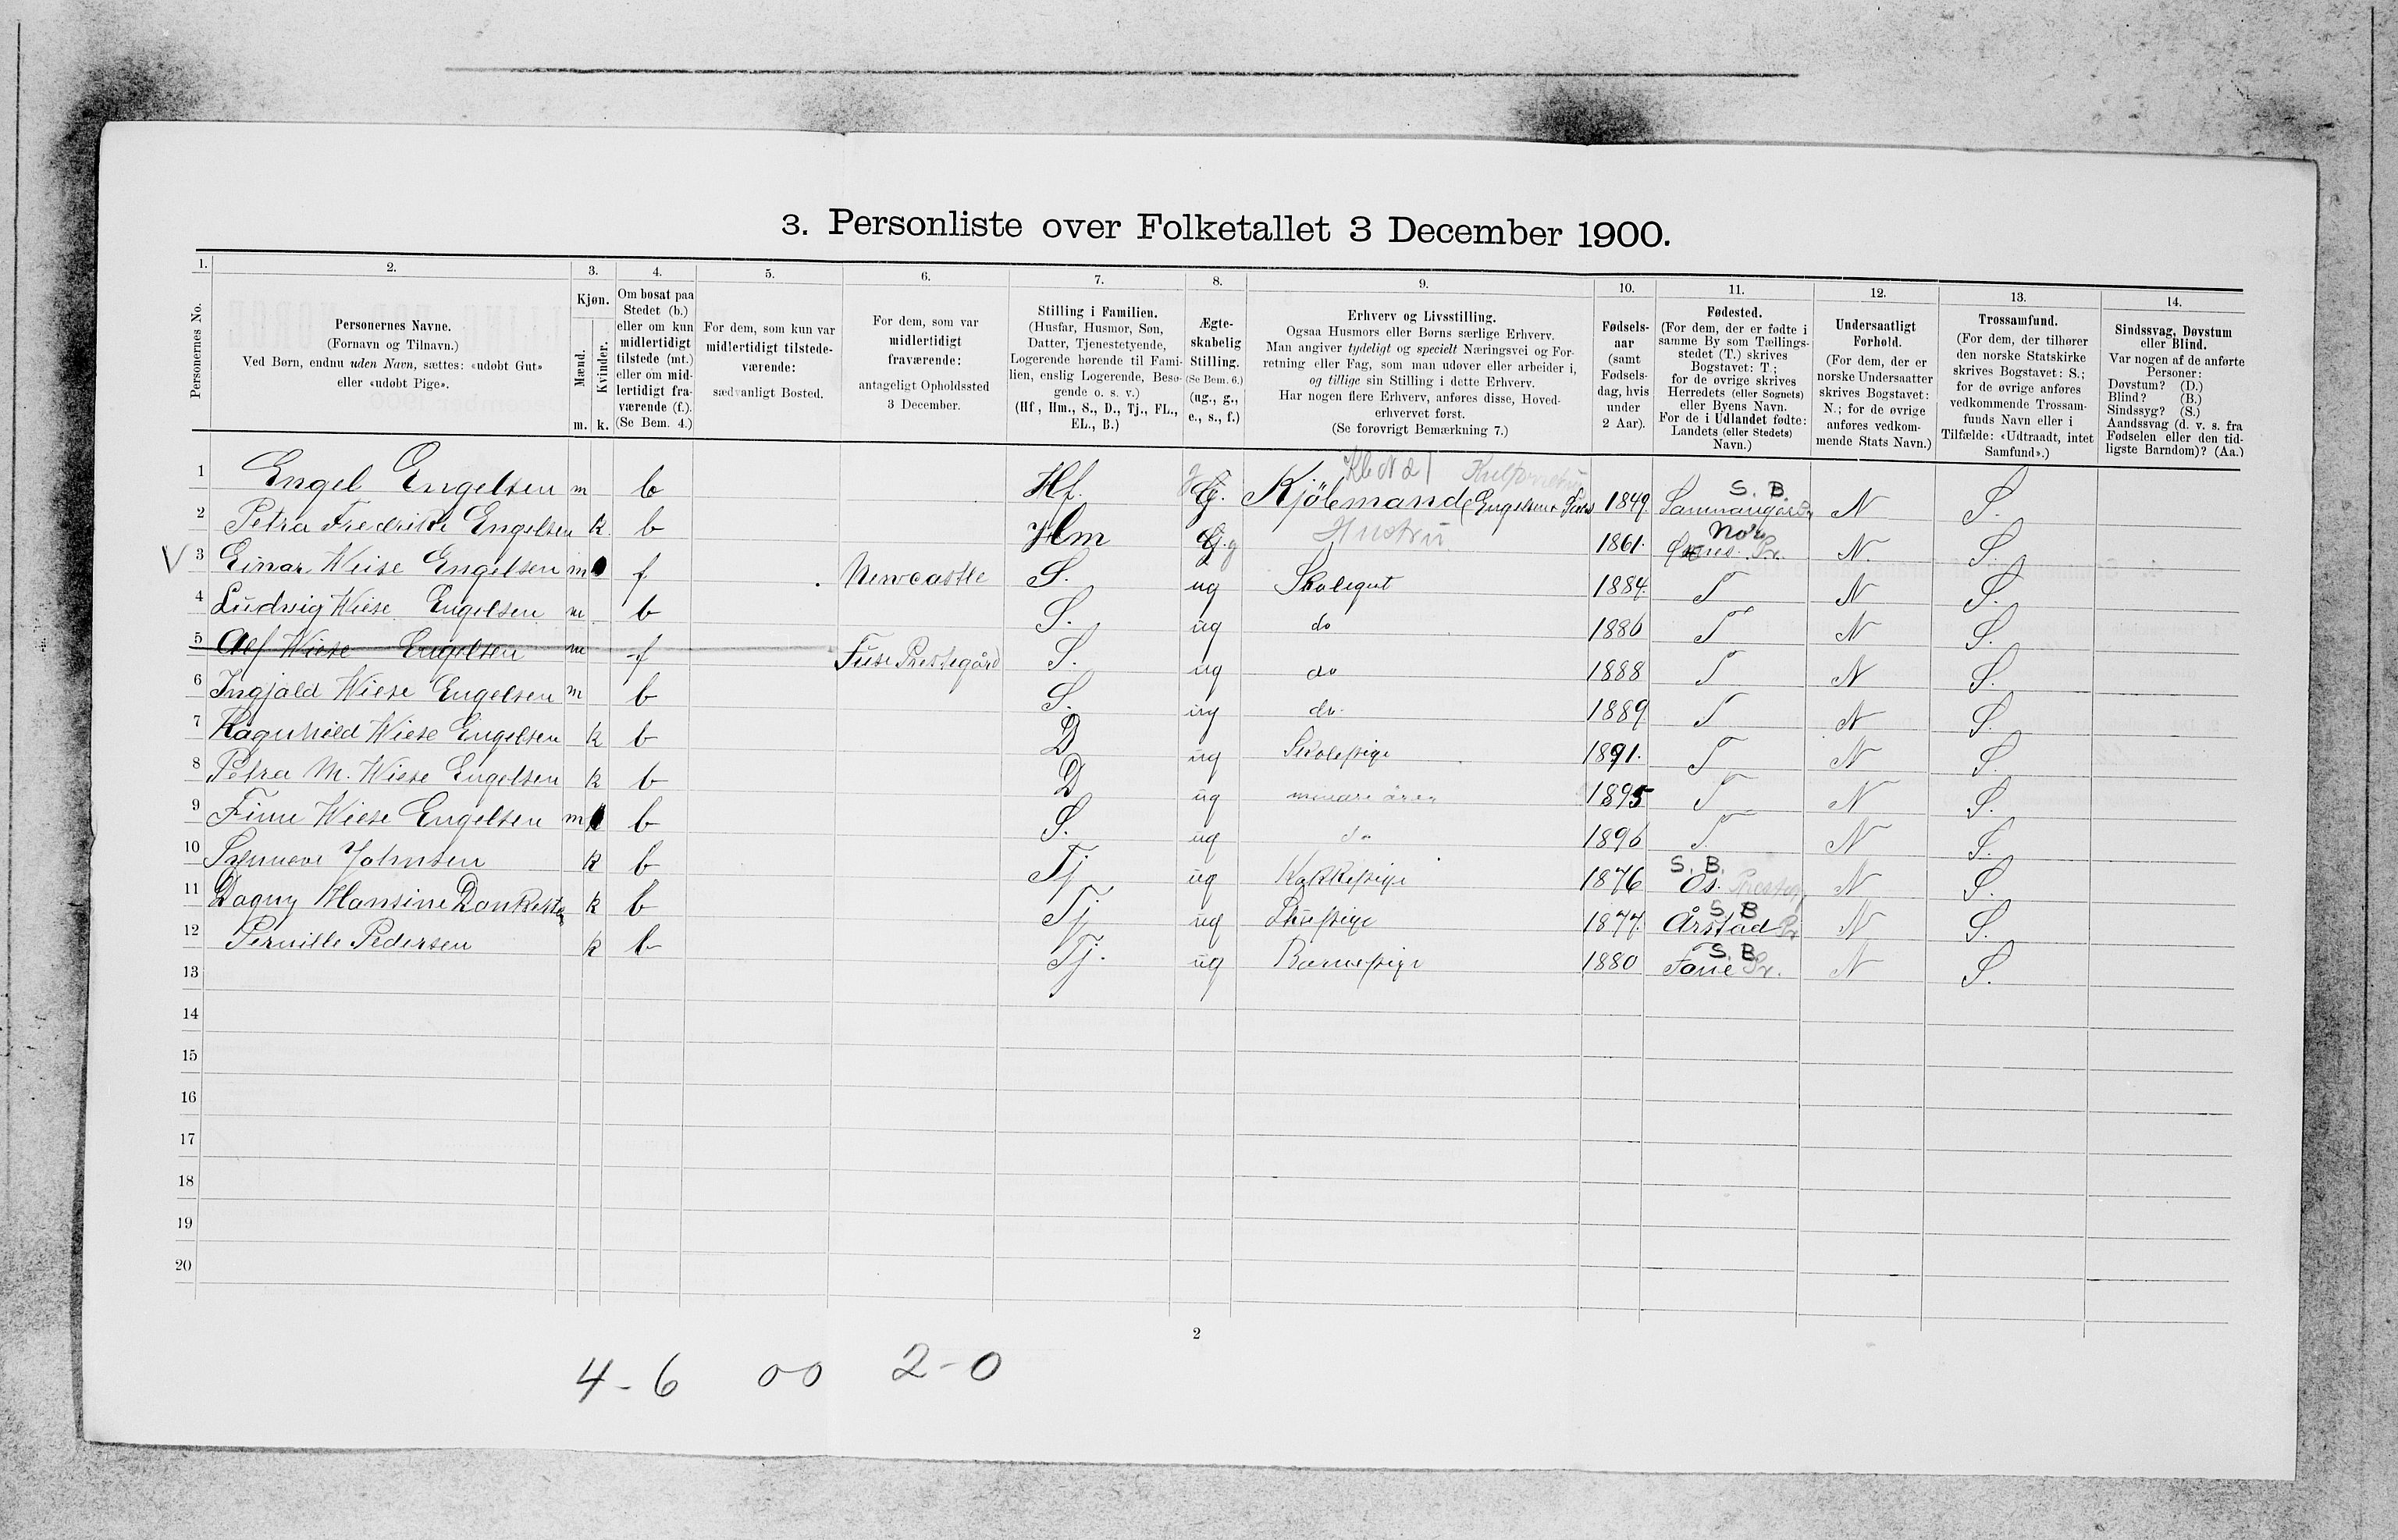 3. Personliste over Folketallet 3 December 1900.
1. 2. 3. 4. 5. 6. 7. 8. 9. 10. 11. 12. 13. 14.
Personernes No.
Personernes Navne.
(Fornavn og Tilnavn.)
Ved Børn, endnu uden Navn, sættes: «udøbt Gut»
eller «udøbt Pige».
Kjøn.
Mænd.
Kvinder.
m. k.
Om bosat paa
Stedet (b.)
eller om kun
midlertidigt
tilstede (mt.)
eller om mid-
lertidigt fra-
værende (f.).
(Se Bem. 4.)
For dem, som kun var
midlertidigt tilstede-
værende:
sædvanligt Bosted.
For dem, som var
midlertidigt
fraværende:
antageligt Opholdssted
3 December.
Stilling i Familien.
(Husfar, Husmor, Søn,
Datter, Tjenestetyende,
Logerende hørende til Fami-
lien, enslig Logerende, Besø-
gende o. s. v.)
(Hf, Hm., S., D., Tj., FL.,
EL., B.)
Ægte-
skabelig
Stilling.
(Se Bem. 6.)
(ug., g.,
e., s., f.)
Erhverv og Livsstilling.
Ogsaa Husmors eller Børns særlige Erhverv.
Man angiver tydeligt og specielt Næringsvei og For-
retning eller Fag, som man udøver eller arbeider i,
og tillige sin Stilling i dette Erhverv.
Har nogen flere Erhverv, anføres disse, Hoved-
erhvervet først.
(Se forøvrigt Bemærkning 7.)
Fødsels-
aar
(samt
Fødsels-
dag, hvis
under
2 Aar).
Fødested.
(For dem, der er fødte i
samme By som Tællings-
stedet (T.) skrives
Bogstavet: T;
for de øvrige skrives
Herredets (eller Sognets)
eller Byens Navn.
For de i Udlandet fødte:
Landets (eller Stedets)
Navn.)
Undersaatligt
Forhold.
(For dem, der er
norske Undersaatter
skrives Bogstavet:
N.; for de øvrige
anføres vedkom-
mende Stats Navn.)
Trossamfund.
(For dem, der tilhører
den norske Statskirke
skrives Bogstavet: S.;
for de øvrige anføres
vedkommende Trossam-
funds Navn eller i
Tilfælde: «Udtraadt, intet
Samfund».)
Sindssvag, Døvstum
eller Blind.
Var nogen af de anførte
Personer:
Døvstum? (D.)
Blind? (B.)
Sindssyg? (S.)
Aandssvag (d. v. s. fra
Fødselen eller den tid-
ligste Barndom)? (Aa.)
S. B.
1 Engel Engelsen m b Hf. G. Kjøbmand (Engelsen 1849 N S.
Hustru Nor
2 Petra Fredrike Engelsen k b Hm G. g 1861. N. S.
V 3 Einar Wiese Engelsen m f Newcastle S. ug Skolegut 1884. T N S.
4 Ludvig Wiese Engelsen m b S. ug do 1886 T N S.
5 Alf Wiese Engelsen m f Fuse Prestegård S. ug do 1888 T N S.
6 Ingjald Wiese Engelsen m b S. ug do. 1889 T N S.
7 Ragnhild Wiese Engelsen k b D ug Skolepige 1891. T N S.
8 Petra M. Wiese Engelsen k b D ug 1895 T N S.
9 Finn Wiese Engelsen m b S. ug do 1896 T. N S.
S. B.
10 Synneve Johnsen k b Tj ug Kokkepige 1876 Os. N S.
S. B
11 Dagny Hansine k b Tj ug Stuepige 1877. Årstad Pr N S.
S. B.
12 Pernille Pedersen k b Tj. ug Barnepige 1880 Fane Pr. N S.
13
14
15
16
17
18
19
20
2
4-6 00 2-0